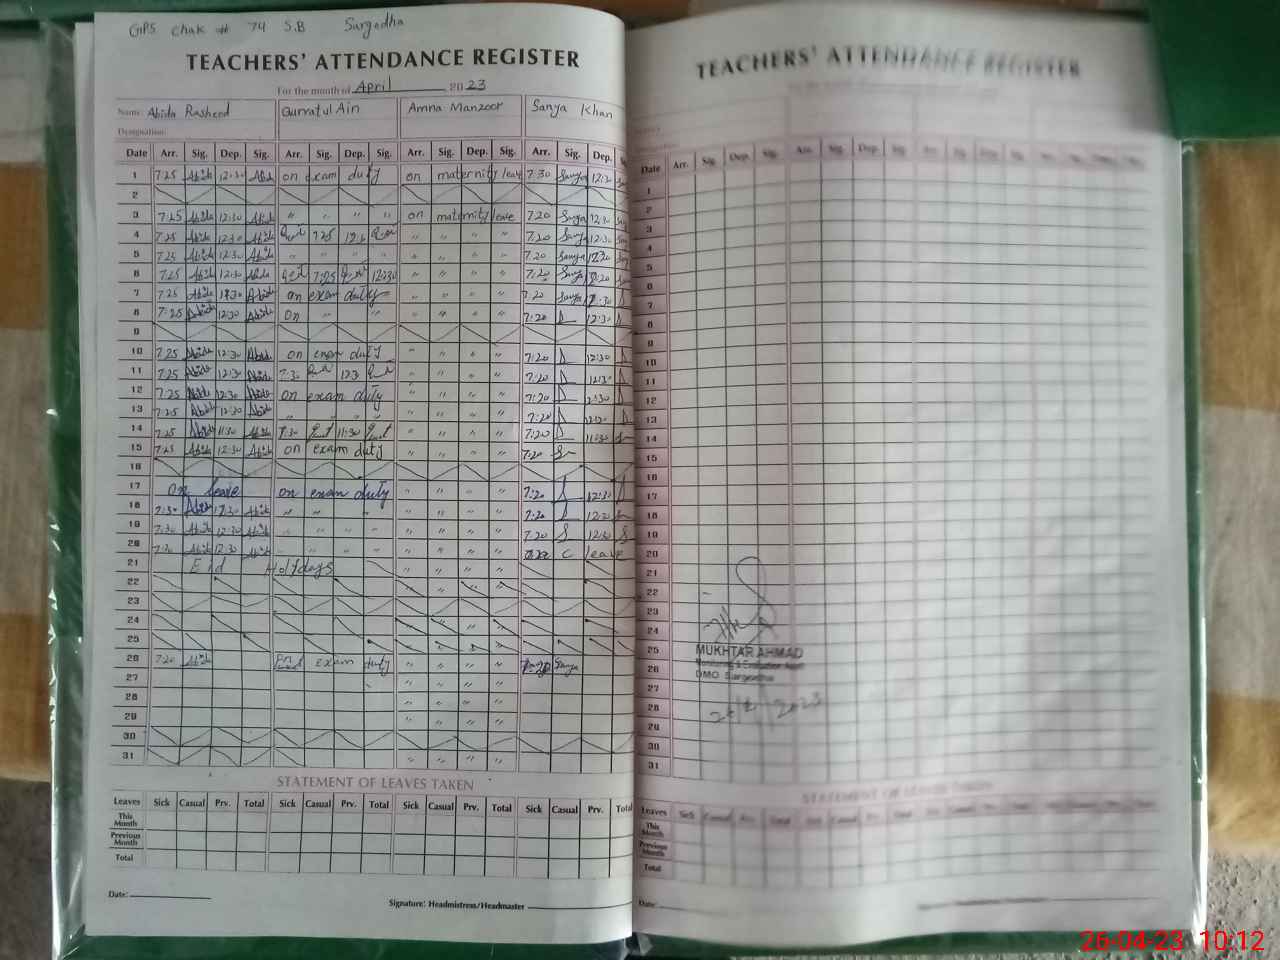 GPS Chak # 74 S.B Sargodha
TEACHERS' ATTENDANCE REGISTER
For the month of April 2023
Name: Abida Rasheed Qurratul Ain Amna Manzoor Sanya Khan
Designation
Date Arr. Sig. Dep. Sig. Arr. Sig. Dep. Sig. Arr. Sig. Dep. Sig. Arr. Sig. Dep. S
1 7.25 Abida 12:30 Abida on exam duty on maternity leave 7:30 Sanya 12:30
2
3 7:25 Abida 12:30 Abida " " " " on maternity leave 7.20 Sanya 12:30
4 7.25 Abida 12:30 Abida 7.25 " " " " 7.20 Sanya 12:30
5 7.25 Abida 12:30 Abida " " " " " " " " 7.20 Sanya 12.30
6 7.25 Abida 12:30 Abida 7:25 12:30 " " " " 7:20 Sanya
7 7.25 Abida Abida on exam duty " " " " 7.20 Sanya
8 7:25 Abida 12:30 Abida on " " " " " " 7:20 12:30
9
10 7.25 Abida 12:30 Abida on exam duty " " " " 7:20 12:30
11 7.25 Abida 12:30 Abida 7:30 " " " " 7:20 12:30
12 7:25 Abida 12:30 Abida on exam duty " " " " 7:20 12:30
13 7:25 Abida Abida " " " " " " " " 7:20
14 7:25 Abida 11:30 Abida 7:30 11:30 " " " " 7:20 11:30
15 7:25 Abida 12:30 Abida on exam duty " " " " 7:20
16
17 On leave on exam duty " " " " 7:20 12:30
18 7:30 Abida 12:30 Abida " " " " " " " " 7:20 12:30
19 7:30 Abida 12:30 Abida " " " " " " " " 7:20 12:30
20 7:30 Abida 12:30 Abida " " " " " " " " C leave
21 Eid Holydays " " " "
22 " "
23
24 " "
25
26 7:20 Abida on exam duty " " " " Sanya
27 " " " "
28 " " " "
29 " " " "
30
31 " " " "
STATEMENT OF LEAVES TAKEN
Leaves Sick Casual Prv. Total Sick Casual Prv. Total Sick Casual Prv. Total Sick Casual Prv. Total
This Month
Previous Month
Total
Date:
Signature: Headmistress/Headmaster
TEACHERS' ATTENDANCE REGISTER
Date Arr. Sig. Dep. Sig. Arr. Sig. Dep. Sig.
1
2
3
4
5
6
7
8
9
10
11
12
13
14
15
16
17
18
19
20
21
22
23
24
25
26
27
28
29
30
31
MUKHTAR AHMAD
Monitoring & Evaluation
DMO Sargodha
2023
STATEMENT OF LEAVES TAKEN
Leaves Sick Casual
This Month
Previous Month
Total
Date:
26-04-23 10:12